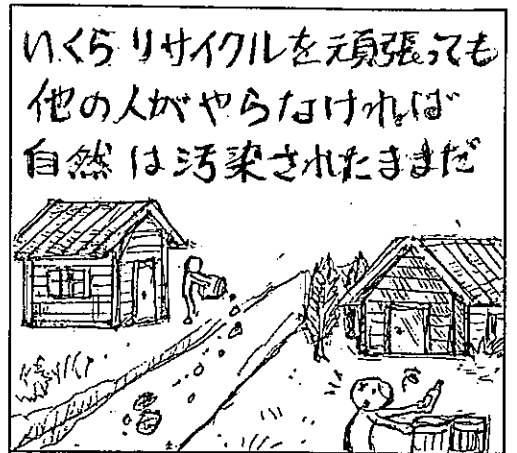 いくらリサイクルを頑張っても
他の人がやらなければ
自然は汚染されたままだ